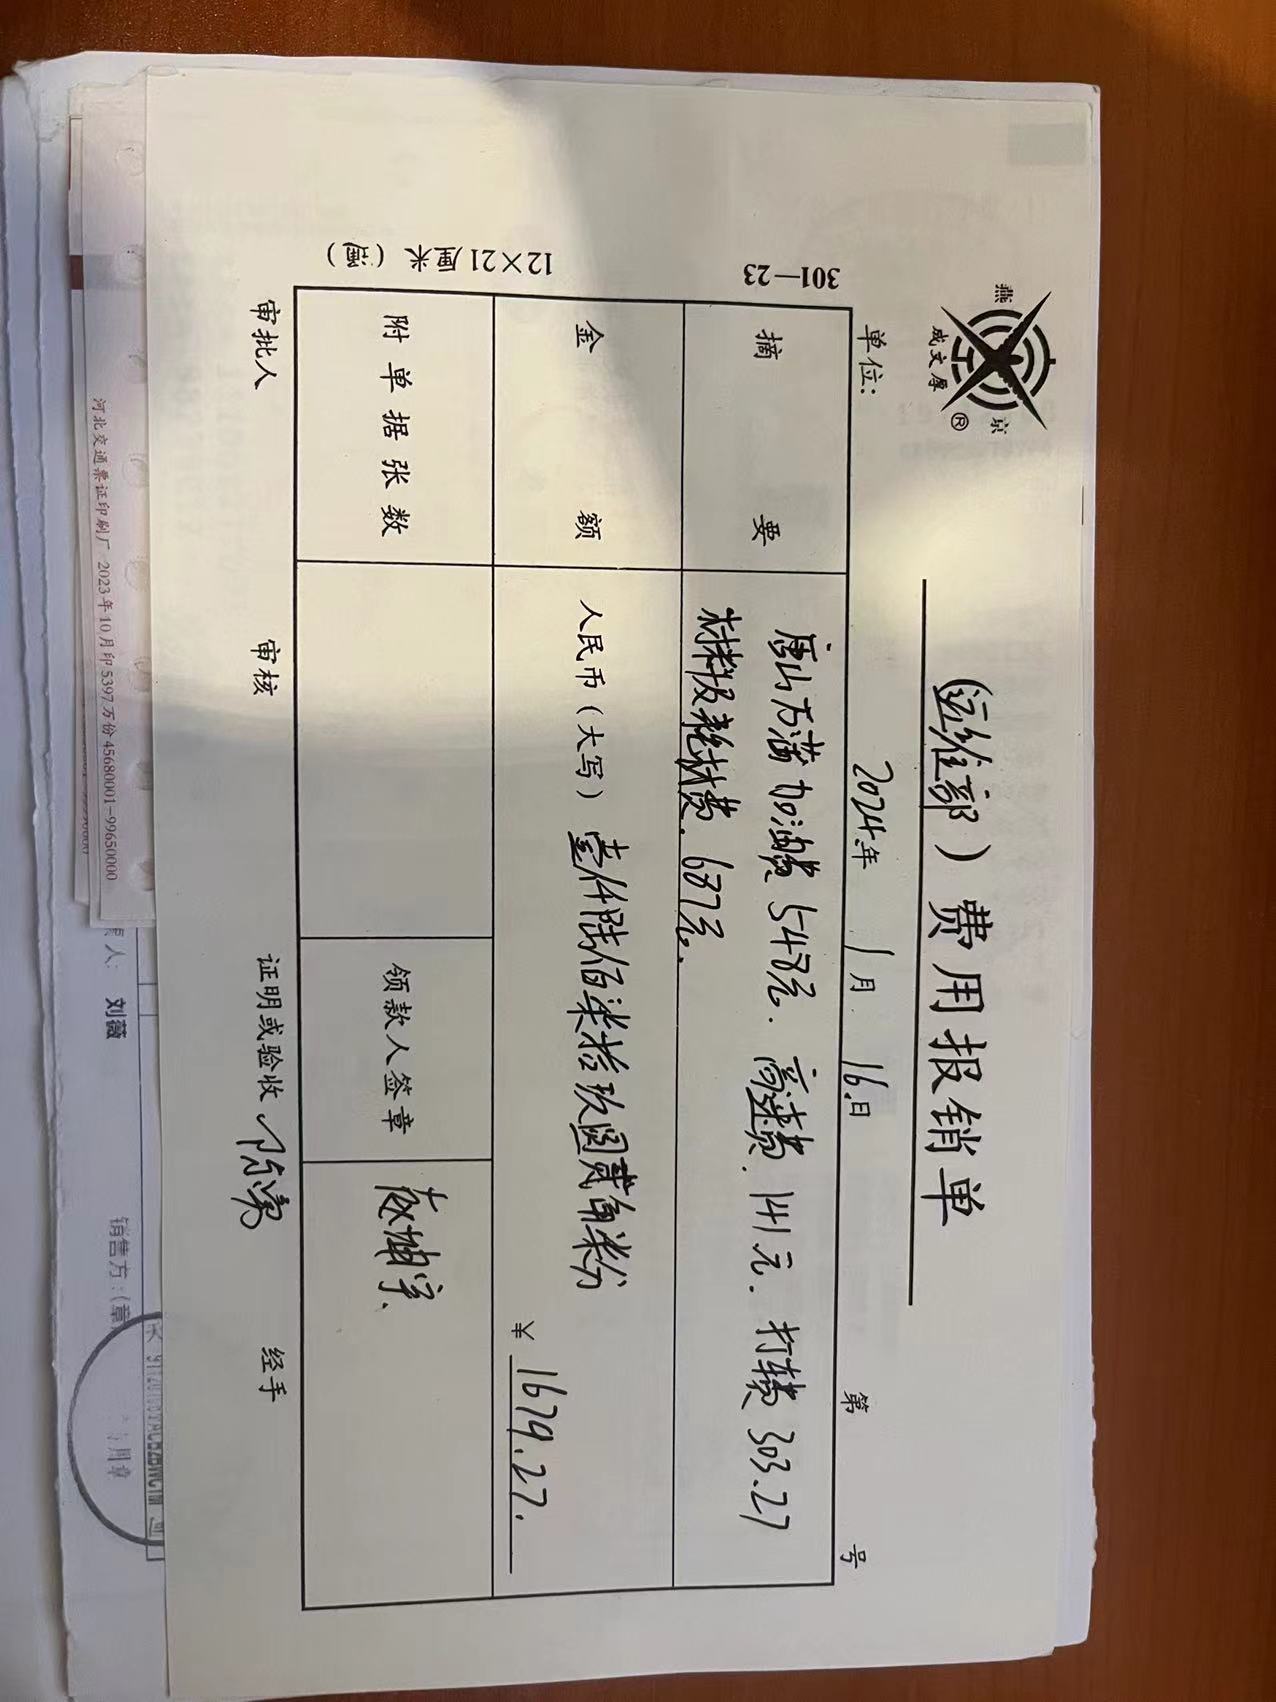 燕 京
成文厚 ®
(运维部)费用报销单
单位: 2024年 1月 16日 第 号
301—23
摘 要
唐山方浦加油费548元. 高速费.141元. 打车费303.27
材料及耗材费.687元.
金 额
人民币(大写) 壹仟陆佰柒拾玖圆贰角柒分
¥ 1679.27.
附单据张数
领款人签章
12×21厘米(㊞)
审批人 审核 证明或验收 经手
河北交通票证印刷厂 2023年10月印5397万份45680001-99650000
人: 刘薇
销售方:(章